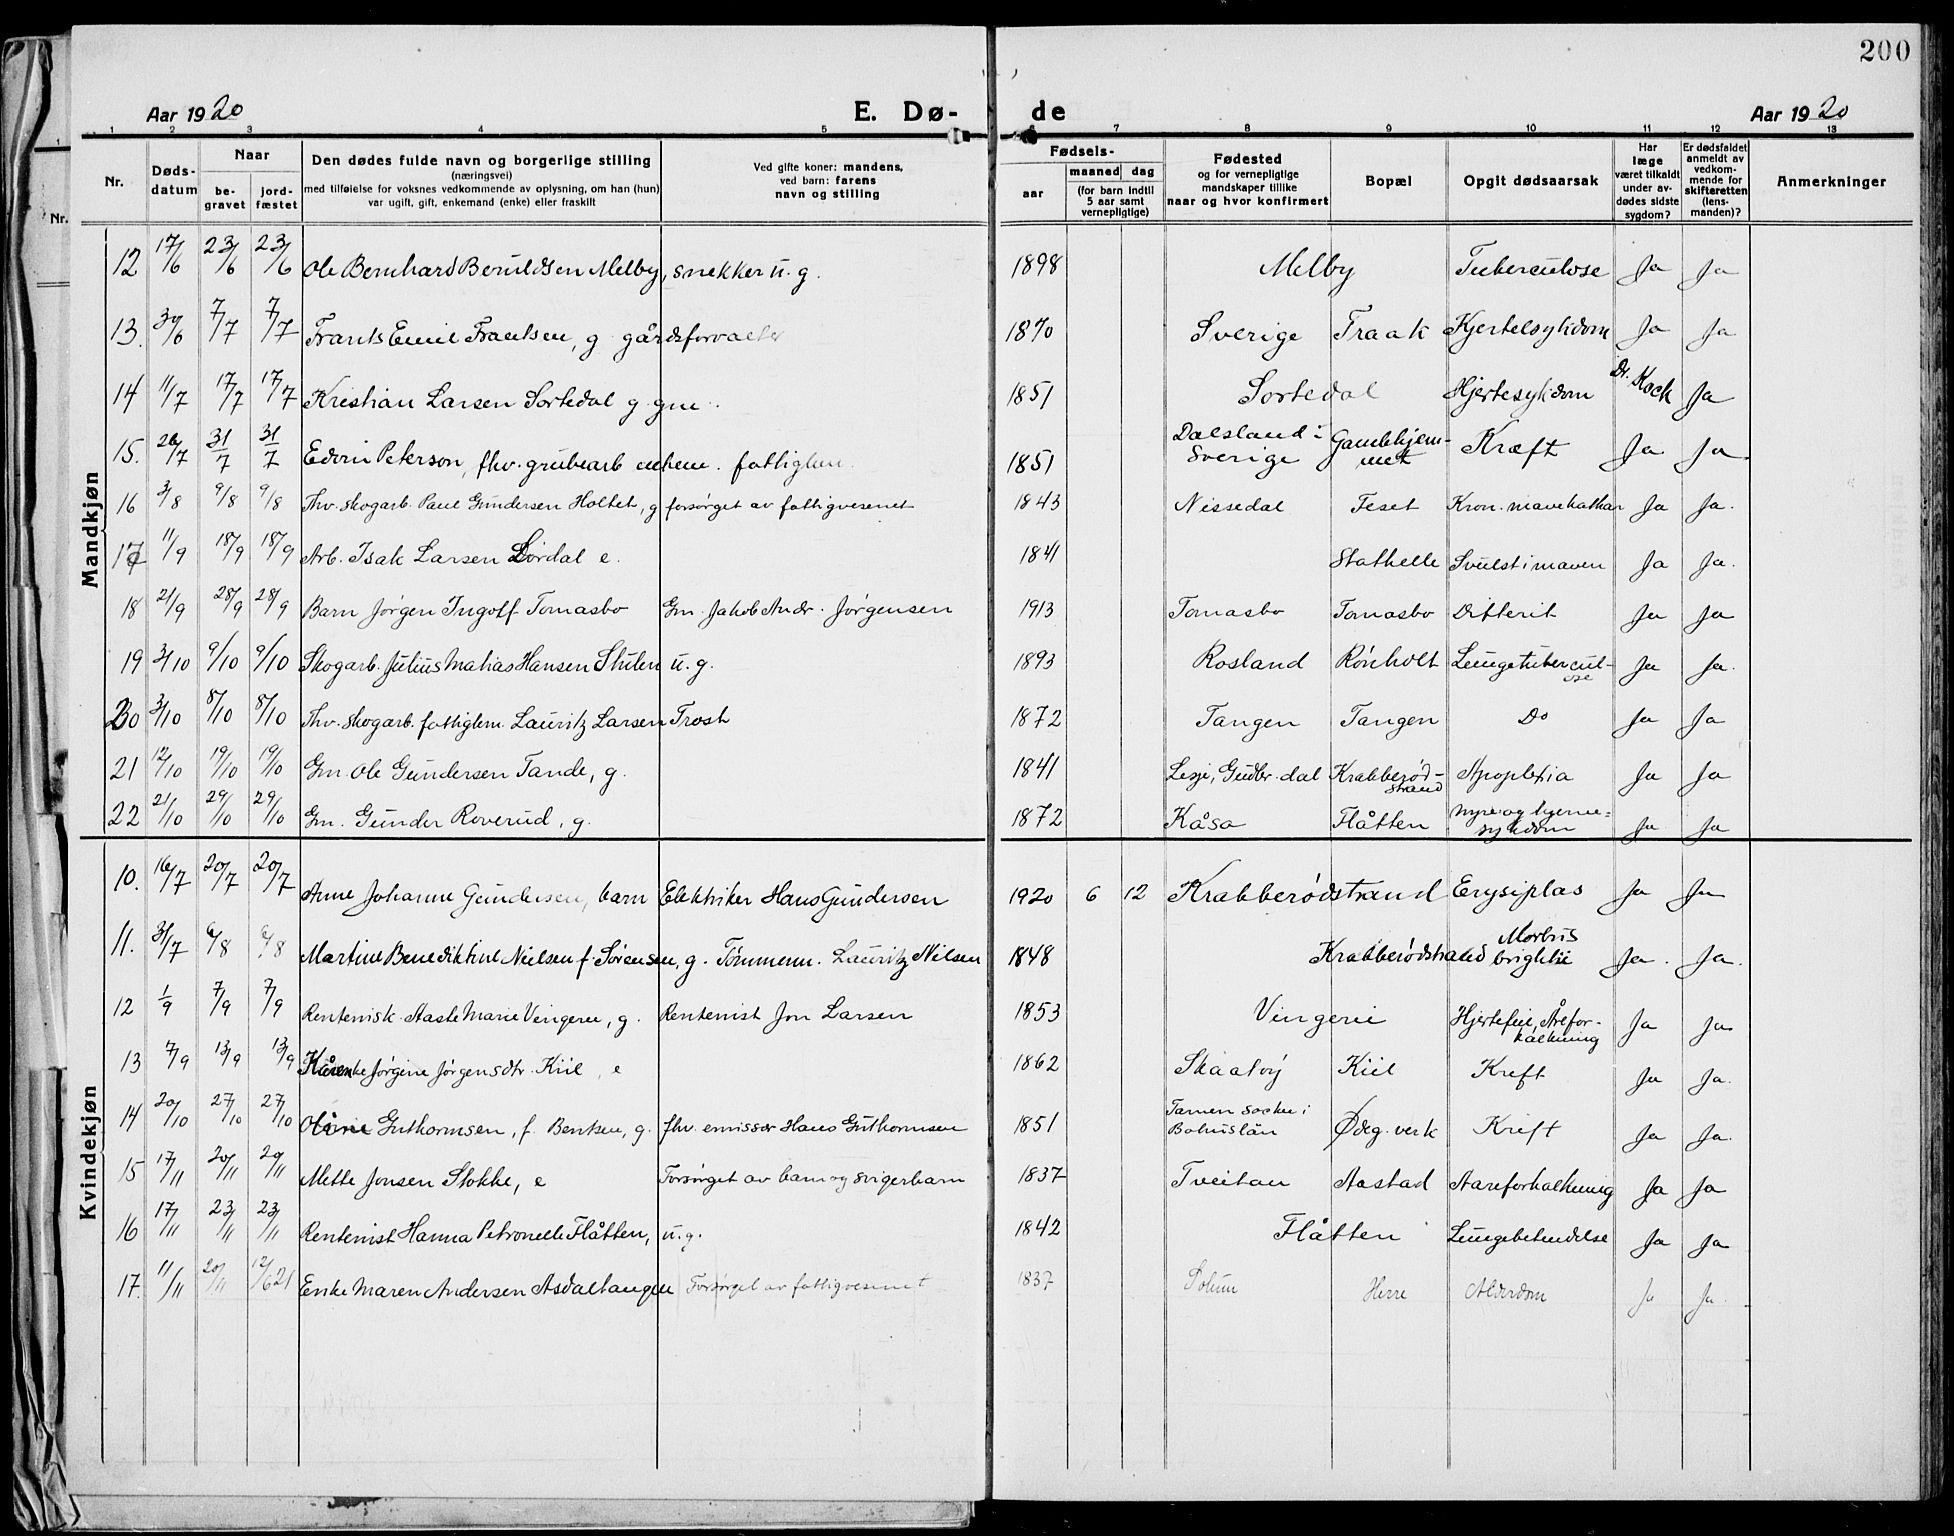 200
Aar 1920 E. Dø- de Aar 1920
1 2 3 4 5 6 7 8 9 10 11 12 13
Nr. Døds-datum Naar be-gravet jord-fæstet Den dødes fulde navn og borgerlige stilling (næringsvei) med tilføielse for voksnes vedkommende av oplysning, om han (hun) var ugift, gift, enkemand (enke) eller fraskilt Ved gifte koner: mandens, ved barn: farens navn og stilling Fødsels- aar maaned dag (for barn indtil 5 aar samt vernepligtige) Fødested og for vernepligtige mandskaper tillike naar og hvor konfirmert Bopæl Opgit dødsaarsak Har læge været tilkaldt under av-dødes sidste sygdom? Er dødsfaldet anmeldt av vedkom-mende for skifteretten (lens-manden)? Anmerkninger
Mandkjøn
12 17/6 23/6 23/6 Ole Bernhard Beruldsen Melby, snekker u.g. 1898 Melby Tuberculose Ja Ja
13. 30/6 7/7 7/7 Frants Emil Frantsen, g gårdsforvalter 1870 Sverige Traak Kjertelsykdom Ja Ja
14 11/7 17/7 17/7 Kristian Larsen Sortedal g. gm. 1851 Sortedal Hjertesykdom Dr. Kock Ja
15. 26/7 31/7 31/7 Edvin Peterson, fhv. grubearb enkem. fattiglem. 1851 Dalsland i Sverige Gamlehjem-met Kræft Ja Ja
16 3/8 9/8 9/8 Fhv. skogarb. Paul Gundersen Holtet, g forsørget av fattigvesenet 1843 Nissedal Feset Kron. mavekathar Ja Ja.
17 11/9 18/9 18/9 Arb. Isak Larsen Lørdal e. 1841 Stathelle Svulst i maven Ja Ja.
18 21/9 28/9 28/9 Barn Jørgen Ingolf Tomasbo Gm. Jakob Andr. Jørgensen 1913 Tomasbo Tomasbo Difterit Ja Ja
19 3/10 9/10 9/10 Skogarb. Julius Matias Hansen Stulen u.g. 1893 Rosland Rönholt Lungetubercul-ose Ja Ja.
20 3/10 8/10 8/10 Fhv. skogarb. fattiglem. Lauritz Larsen Trosh 1872 Tangen Tangen Do Ja Ja
21 12/10 19/10 19/10 Gm. Ole Gundersen Tande, g. 1841 Lesje, Gudbr.dal Krabberød-strand Apoplexia Ja Ja
22 21/10 29/10 29/10 Gm. Gunder Roverud, g. 1872 Kåsa Flåtten nyre og hjerne=sykdom Ja Ja
Kvindekjøn
10. 16/7 20/7 20/7 Anne Johanne Gundersen, barn Elektriker Hans Gundersen 1920 6 12 Krabberødstrand Erysiplas Ja Ja
11. 31/7 6/8 6/8 Martine Benediktine Nielsen f. Sørensen, g. Tømmerm. Lauritz Nilsen 1848 Krabberødstrand Morbus brightii Ja. Ja.
12 1/9 7/9 7/9 Rentenisk. Aaste Marie Vingerei, g. Rentenist Jon Larsen 1853 Vingerei Hjertefeil, Årefor-kalkning Ja Ja
13 7/9 13/9 13/9 Jørgine Jørgensdtr. Kiil, e 1862 Skaatöy Kiil Kreft Ja Ja.
14 20/10 27/10 27/10 Oline Guthormsen, f. Bentsen, g. fhv. emissær Hans Guthormsen 1851 Tamen socken i Bohuslän Ødeg.verk Kreft Ja Ja.
15 17/11 20/11 20/11 Mette Jonsen Stokke, e Forsørget av barn og svigerbarn 1837 Tveitan Aastad Aareforkalkning Ja Ja
16 17/11 23/11 23/11 Rentenist Hanna Petronelle Flåtten, u.g. 1842 Flåtten Lungebetendelse Ja Ja
17. 11/11 20/11 12/6 21 Enke Maren Andersen Asdaltangen Forsørget av fattigvesenet 1837 Solum Herre Alderdom Ja Ja.